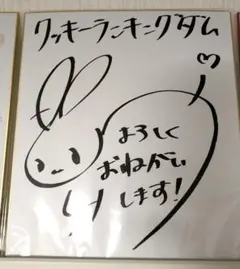 クッキーランキングダム
よろしく
おねがい
します!